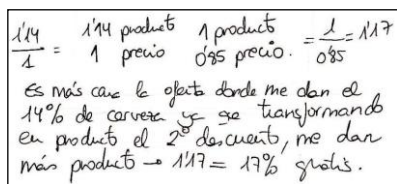 1'14/1 = 1'14 product / 1 precio 1 product / 0'85 precio. = 1/0'85 = 1'17
Es más cara la oferta donde me dan el
14% de cerveza ya que transformando
en product el 2º descuento, me dan
más product → 1'17 = 17% gratis.